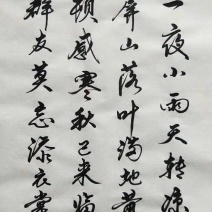 一夜小雨天转凉
屏山落叶满地黄
顿感寒秋已来临
群友莫忘添衣裳